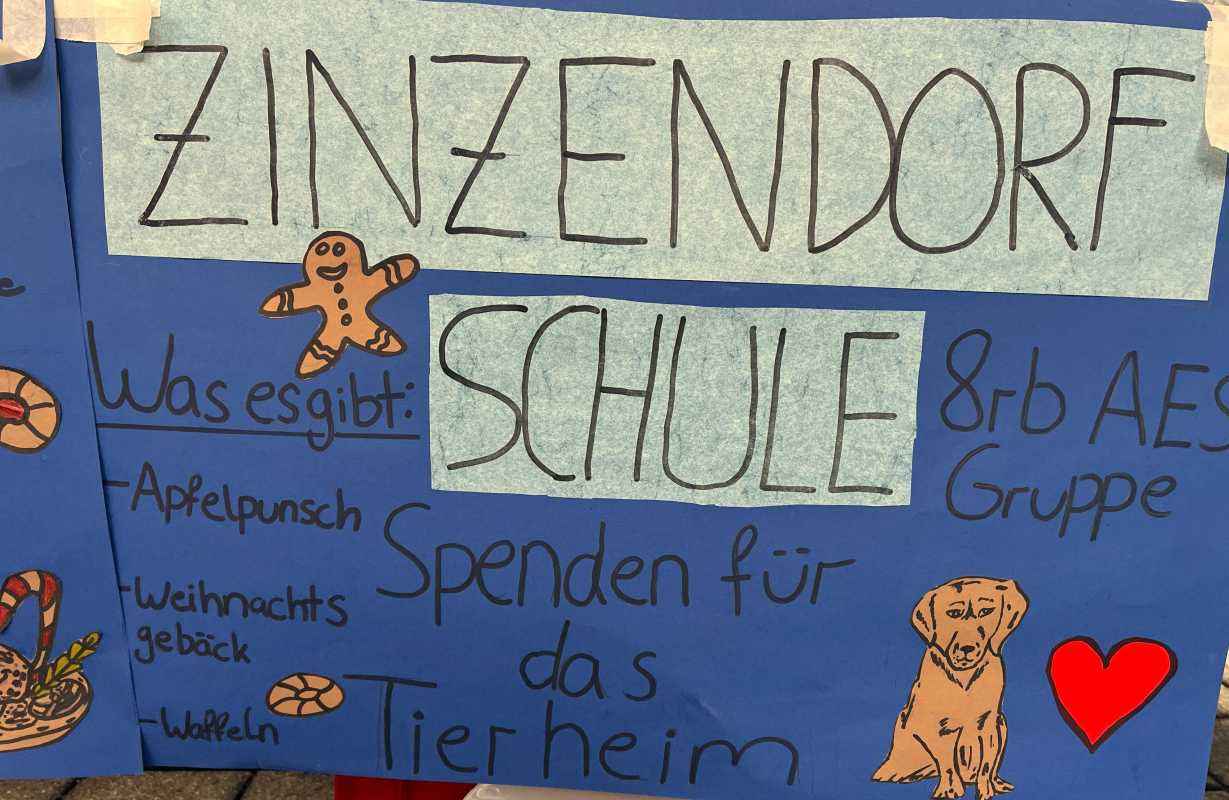 ZINZENDORF
SCHULE
8rb AES
Gruppe
Was es gibt:
- Apfelpunsch
- Weihnachts
gebäck
- Waffeln
Spenden für
das
Tierheim